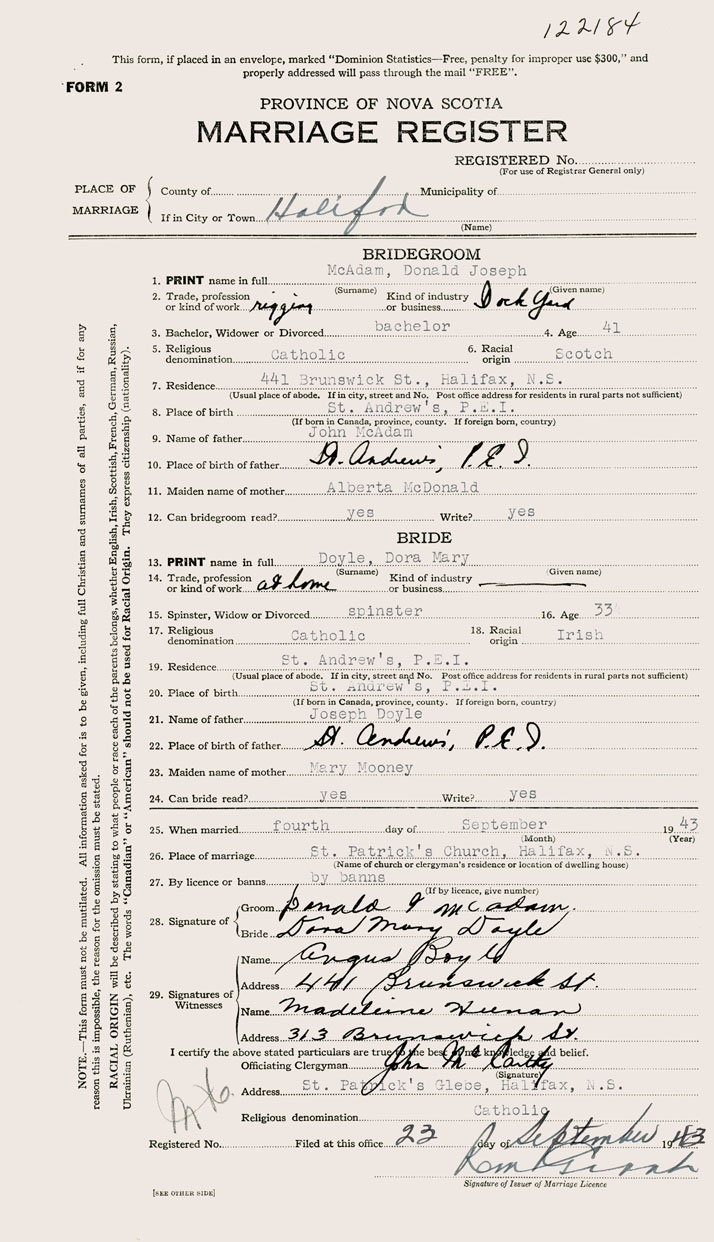 122184
This form, if placed in an envelope, marked "Dominion Statistics—Free, penalty for improper use $300," and
properly addressed will pass through the mail "FREE".
FORM 2
PROVINCE OF NOVA SCOTIA
MARRIAGE REGISTER
REGISTERED No.
(For use of Registrar General only)
PLACE OF MARRIAGE
County of Municipality of
If in City or Town Halifax
(Name)
BRIDEGROOM
1. PRINT name in full McAdam, Donald Joseph
(Surname) (Given name)
2. Trade, profession or kind of work rigging Kind of industry or business Dock Yard
3. Bachelor, Widower or Divorced bachelor 4. Age 41
5. Religious denomination Catholic 6. Racial origin Scotch
7. Residence 441 Brunswick St., Halifax, N.S.
(Usual place of abode. If in city, street and No. Post office address for residents in rural parts not sufficient)
8. Place of birth St. Andrew's, P.E.I.
(If born in Canada, province, county. If foreign born, country)
9. Name of father John McAdam
10. Place of birth of father St. Andrews', P.E.I.
11. Maiden name of mother Alberta McDonald
12. Can bridegroom read? yes Write? yes
BRIDE
13. PRINT name in full Doyle, Dora Mary
(Surname) (Given name)
14. Trade, profession or kind of work at home Kind of industry or business
15. Spinster, Widow or Divorced spinster 16. Age 33
17. Religious denomination Catholic 18. Racial origin Irish
19. Residence St. Andrew's, P.E.I.
(Usual place of abode. If in city, street and No. Post office address for residents in rural parts not sufficient)
20. Place of birth St. Andrew's, P.E.I.
(If born in Canada, province, county. If foreign born, country)
21. Name of father Joseph Doyle
22. Place of birth of father St. Andrews', P.E.I.
23. Maiden name of mother Mary Mooney
24. Can bride read? yes Write? yes
25. When married fourth day of September 1943
(Month) (Year)
26. Place of marriage St. Patrick's Church, Halifax, N.S.
(Name of church or clergyman's residence or location of dwelling house)
27. By licence or banns by banns
(If by licence, give number)
28. Signature of
Groom Donald J McAdam.
Bride Dora Mary Doyle
29. Signatures of Witnesses
Name Angus Boyle
Address 441 Brunswick St.
Name Madeleine
Address 313 Brunswick St.
I certify the above stated particulars are true to the best of my knowledge and belief.
Officiating Clergyman John McCarthy
(Signature)
Address St. Patrick's Glebe, Halifax, N.S.
Religious denomination Catholic
Registered No. Filed at this office 23 day of September 1943
Signature of Issuer of Marriage Licence
[SEE OTHER SIDE]
NOTE.—This form must not be mutilated. All information asked for is to be given, including full Christian and surnames of all parties, and if for any
reason this is impossible, the reason for the omission must be stated.
RACIAL ORIGIN will be described by stating to what people or race each of the parents belongs, whether English, Irish, Scottish, French, German, Russian,
Ukrainian (Ruthenian), etc. The words "Canadian" or "American" should not be used for Racial Origin. They express citizenship (nationality).